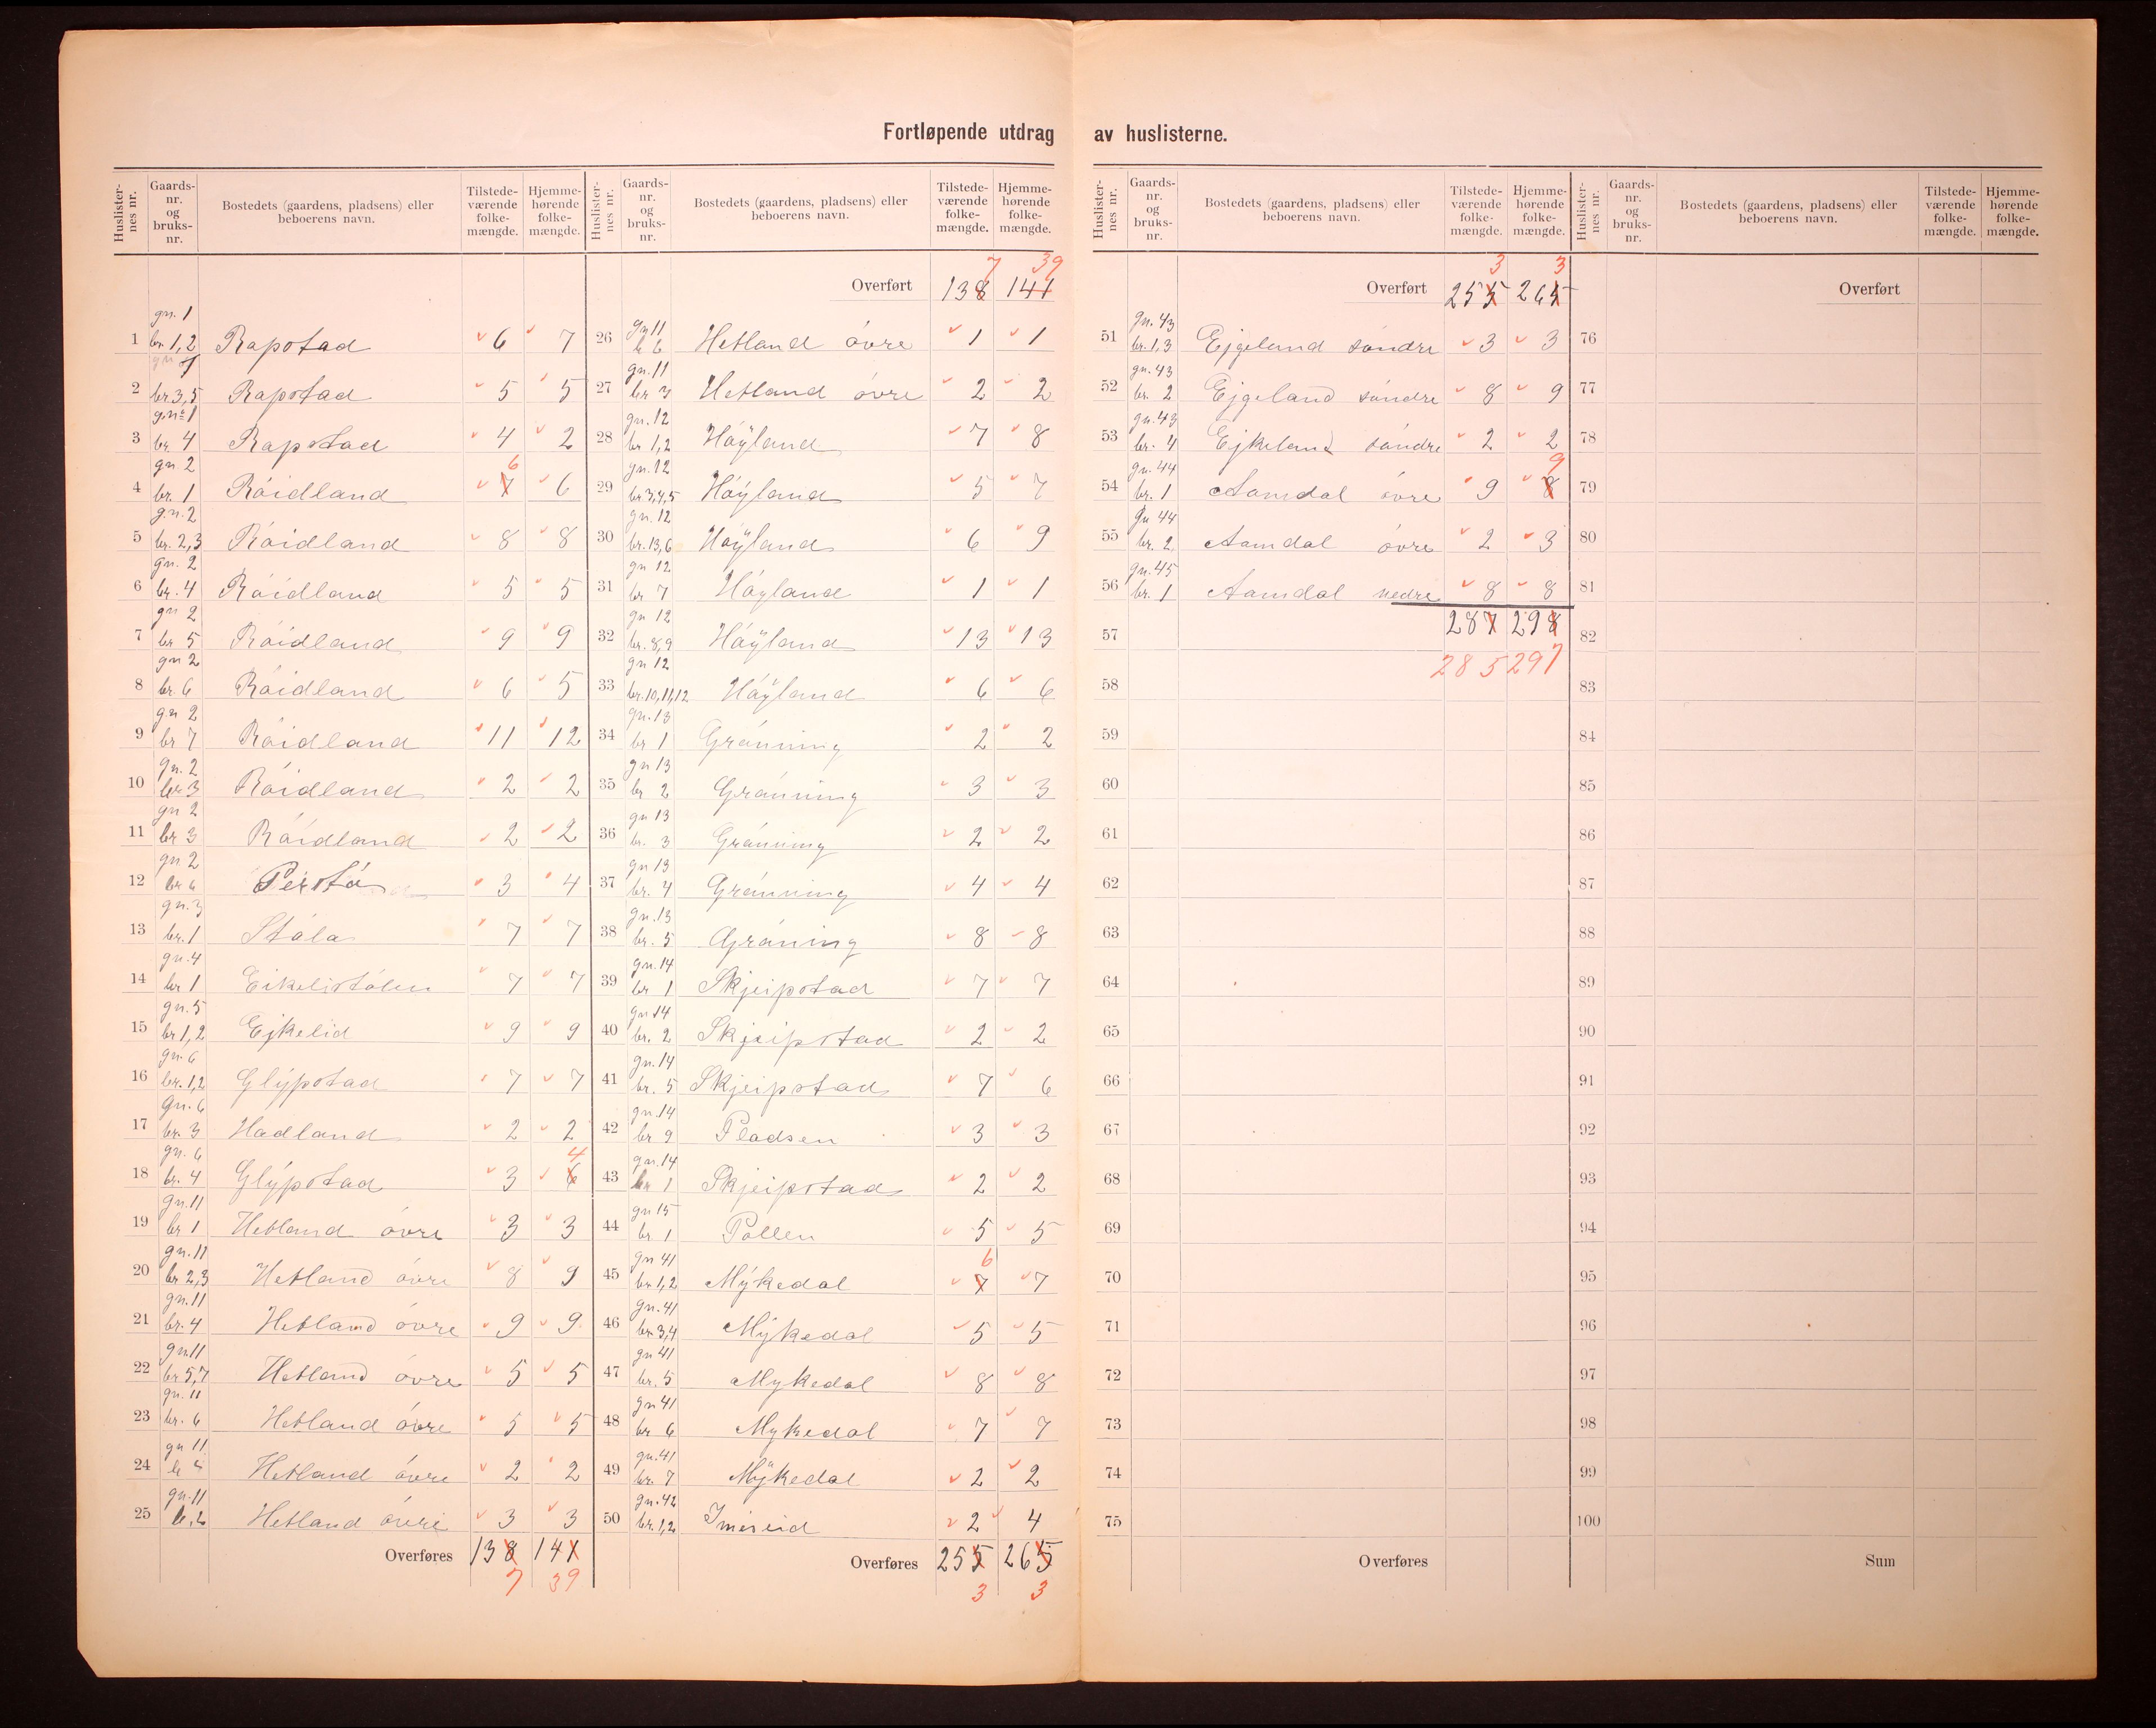 Fortløpende utdrag av huslisterne.
Huslister-nes nr. Gaards-nr. og bruks-nr. Bostedets (gaardens, pladsens) eller beboerens navn. Tilstede-værende folke-mængde. Hjemme-hørende folke-mængde.
gn. 1
1 br. 1,2 Rapstad 6 7
gn 1
2 br 3,5 Rapstad 5 5
gn. 1
3 br. 4 Rapstad 4 2
gn. 2 6
4 br. 1 Róidland 7 6
g.n. 2
5 br. 2,3 Róidland 8 8
gn. 2
6 br. 4 Róidland 5 5
gn 2
7 br 5 Róidland 9 9
gn 2
8 br. 6 Róidland 6 5
gn 2
9 br 7 Róidland 11 12
gn. 2
10 br 3 Róidland 2 2
gn 2
11 br 3 Róidland 2 2
gn. 2
12 Perstó 3 4
gn. 3
13 br. 1 Stóla 7 7
gn. 4
14 br 1 Eikelistólen 7 7
gn. 5
15 br 1,2 Ejkelid 9 9
gn. 6
16 br. 1,2 Glÿpstad 7 7
gn. 6
17 br. 3 Hadland 2 2
gn. 6 4
18 br. 4 Glÿpstad 3 6
gn. 11
19 br 1 Hetland óvre 3 3
gn. 11
20 br 2,3 Hetland óvre 8 9
gn. 11
21 br. 4 Hetland óvre 9 9
gn 11
22 br 5,7 Hetland óvre 5 5
gn. 11
23 br. 6 Hetland óvre 5 5
gn 11
24 Hetland óvre 2 2
gn. 11
25 Hetland óvre 3 3
Overføres 138 141
7 39
Huslister-nes nr. Gaards-nr. og bruks-nr. Bostedets (gaardens, pladsens) eller beboerens navn. Tilstede-værende folke-mængde. Hjemme-hørende folke-mængde.
7 39
Overført 138 141
gn 11
26 b 6 Hetland óvre 1 1
gn. 11
27 br 3 Hetland óvre 2 2
gn. 12
28 br 1,2 Hóÿland 7 8
gn. 12
29 br 3,4,5 Hóÿland 5 7
gn. 12
30 br. 13,6 Hóÿland 6 9
gn 12
31 br 7 Hóÿland 1 1
gn 12
32 br. 8,9 Hóÿland 13 13
gn 12
33 br. 10,11,12 Hóÿland 6 6
gn. 13
34 br 1 Gróning 2 2
gn 13
35 br 2 Gróning 3 3
gn 13
36 br. 3 Gróning 2 2
gn 13
37 br. 4 Gróning 4 4
gn. 13
38 br. 5 Gróning 8 8
gn. 14
39 br 1 Skjeipstad 7 7
gn 14
40 br. 2 Skjeipstad 2 2
gn. 14
41 br. 5 Skjeipstad 7 6
gn. 14
42 br 9 Pladsen 3 3
gn. 14
43 br 1 Skjeipstad 2 2
gn 15
44 br. 1 Pollen 5 5
gn 41 6
45 br. 1,2 Mÿkedal 7 7
gn. 41
46 br. 3,4 Mÿkedal 5 5
gn 41
47 br. 5 Mykedal 8 8
gn 41
48 br 6 Mykedal 7 7
gn. 41
49 br. 7 Mÿkedal 2 2
gn. 42
50 br. 1,2 Imeseid 2 4
Overføres 255 265
3 3
Huslister-nes nr. Gaards-nr. og bruks-nr. Bostedets (gaardens, pladsens) eller beboerens navn. Tilstede-værende folke-mængde. Hjemme-hørende folke-mængde.
3 3
Overført 255 265
gn. 43
51 br. 1,3 Ejgeland sóndre 3 3
gn. 43
52 br. 2 Ejgeland sóndre 8 9
gn. 43
53 br. 4 Ejkeland sóndre 2 2
gn. 44 9
54 br. 1 Aamdal óvre 9 8
gn 44
55 br. 2 Aamdal óvre 2 3
gn. 45
56 br. 1 Aamdal nedre 8 8
57 287 298
285 297
58
59
60
61
62
63
64
65
66
67
68
69
70
71
72
73
74
75
Overføres
Huslister-nes nr. Gaards-nr. og bruks-nr. Bostedets (gaardens, pladsens) eller beboerens navn. Tilstede-værende folke-mængde. Hjemme-hørende folke-mængde.
Overført
76
77
78
79
80
81
82
83
84
85
86
87
88
89
90
91
92
93
94
95
96
97
98
99
100
Sum